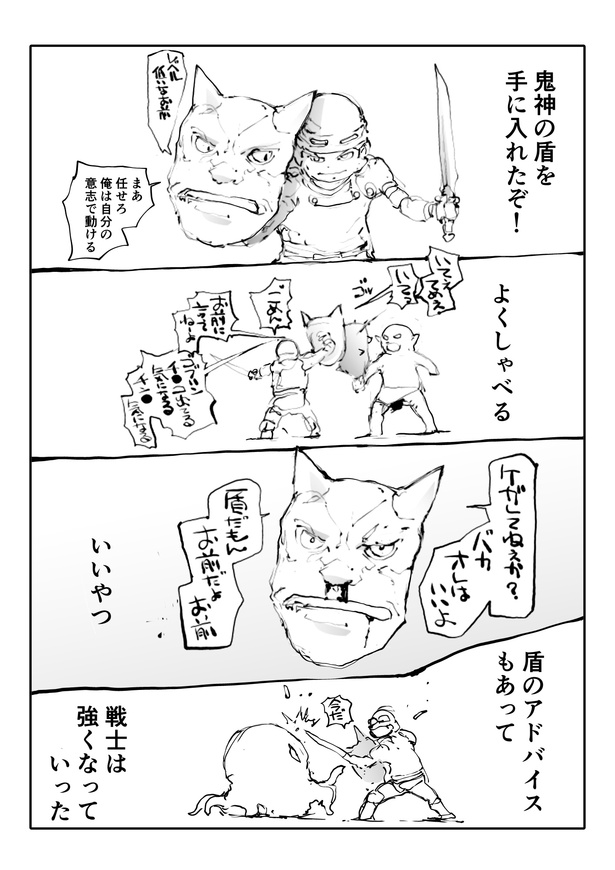 鬼神の盾を
手に入れたぞ！
レベル
低いなお前
まあ
任せろ
俺は自分の
意志で動ける
よくしゃべる
いてえ
てめえ
いてっ
ゴッ
ごめん
お前に
言って
ねーよ
ゴブリン
チ●コ出てる
気になる
チン●
気になる
ケガしてねぇか？
バカ
オレは
いいよ
盾だもん
お前だよ
お前
いいやつ
盾のアドバイス
もあって
今だ
戦士は
強くなって
いった